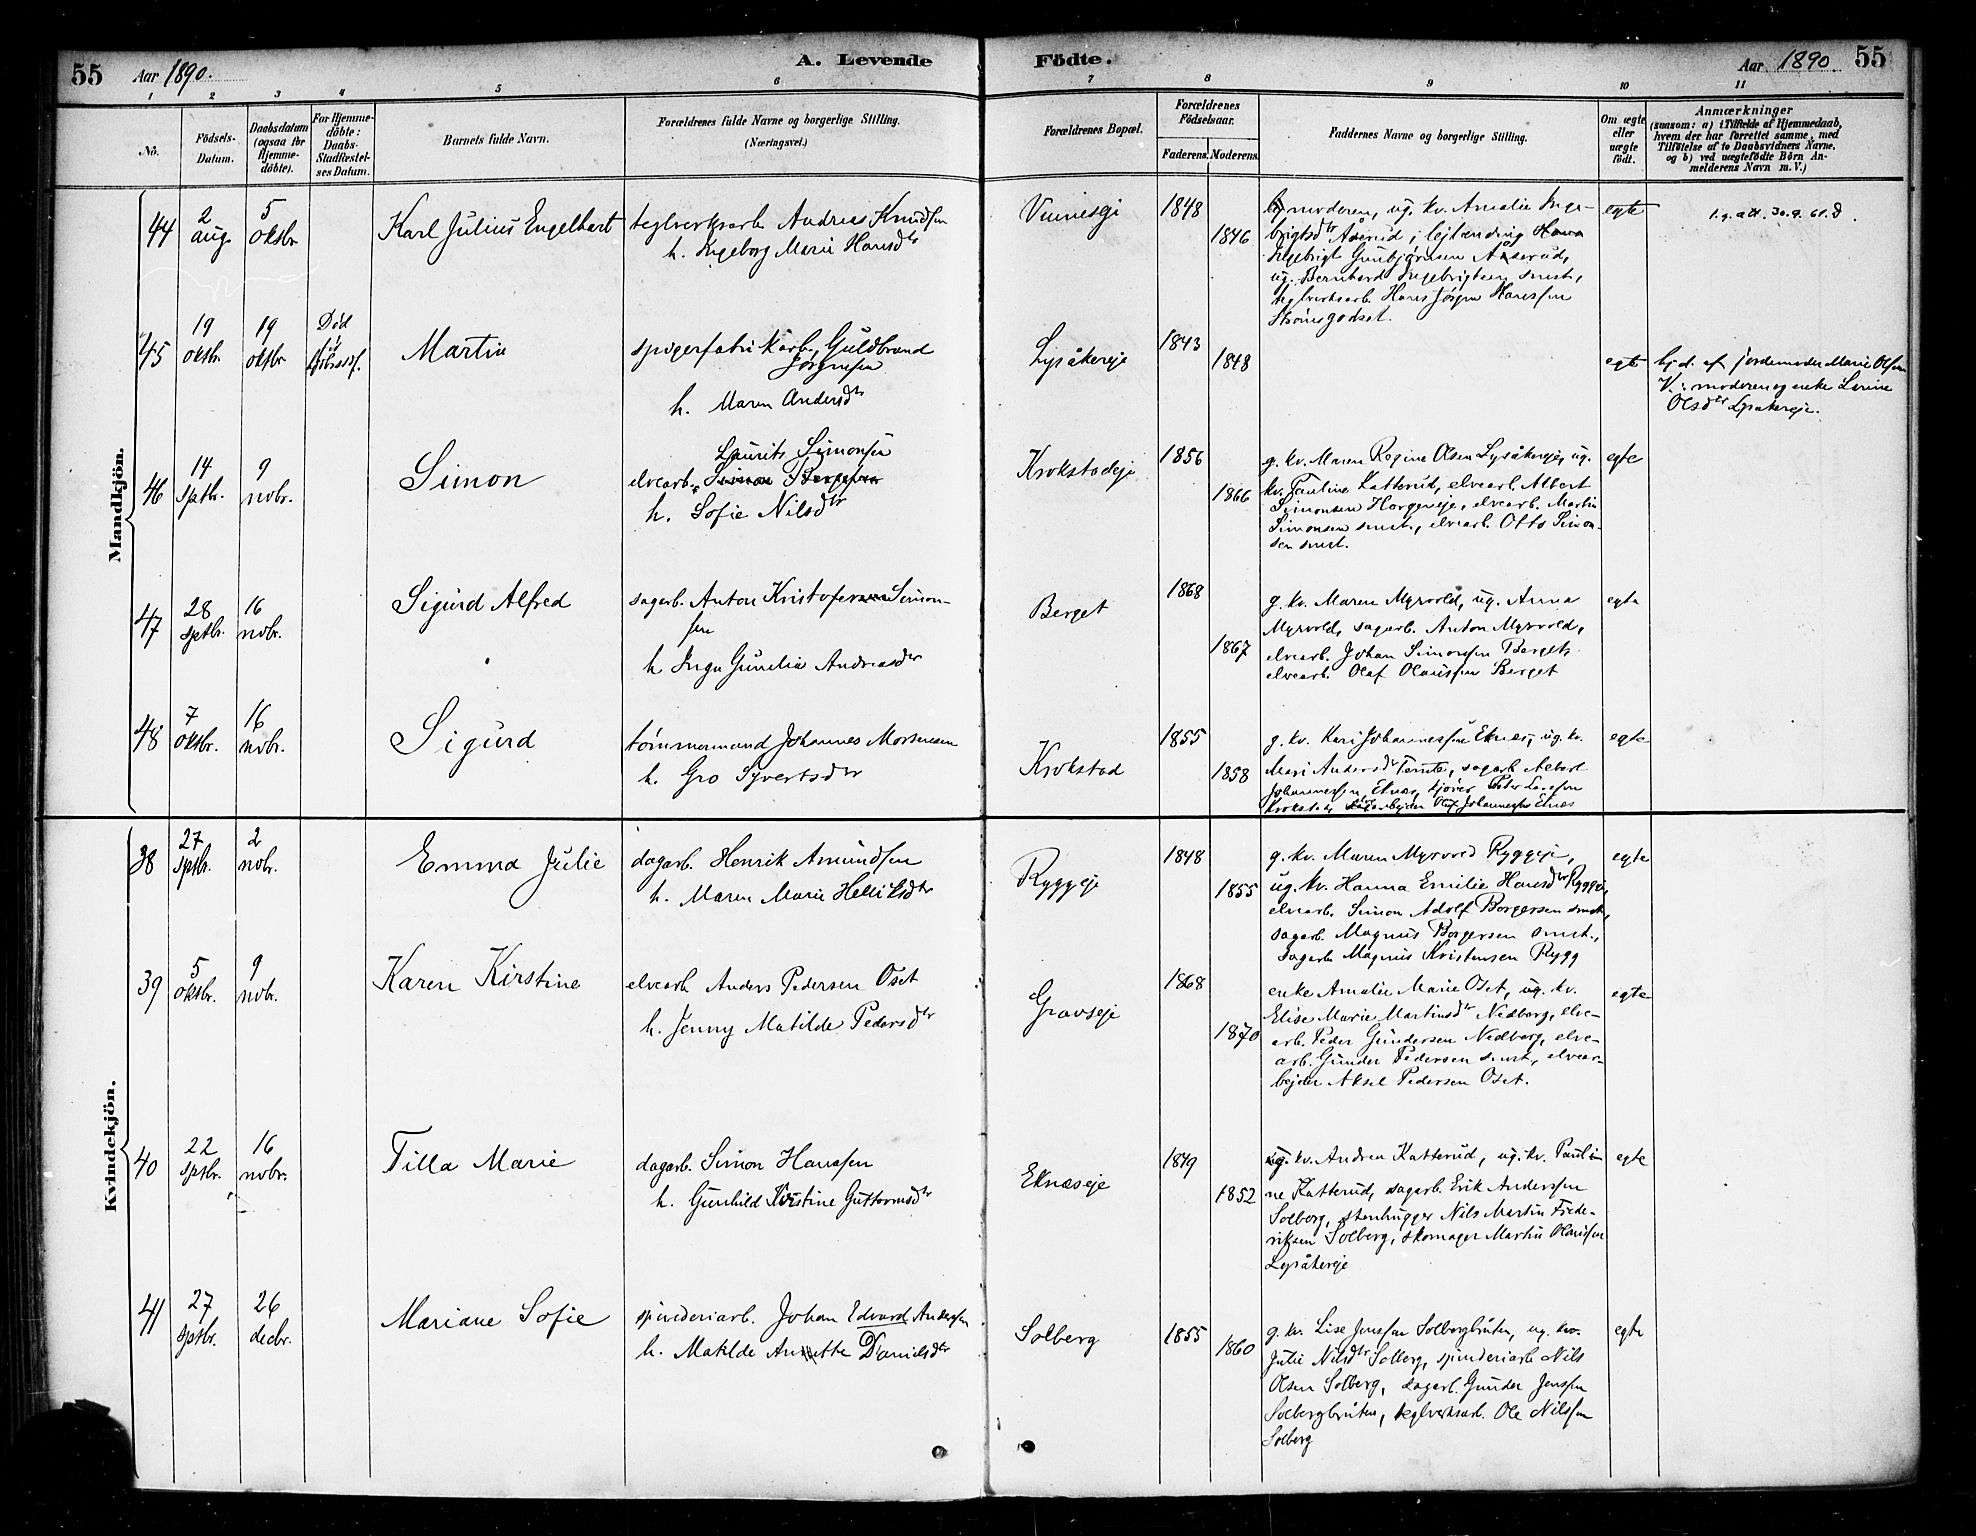 55 Aar 1890.
A. Levende
Födte.
Aar 1890 55
1 2 3 4 5 6 7 8 9 10 11
No.
Födsels-
Datum.
Daabsdatum
(ogsaa for
Hjemme-
döbte).
For Hjemme-
döbte:
Daabs-
Stadfæstel-
ses Datum.
Barnets fulde Navn.
Forældrenes fulde Navne og borgerlige Stilling.
(Næringsvei.)
Forældrenes Bopæl.
Forældrenes
Födselsaar.
Faderens. Moderens.
Faddernes Navne og borgerlige Stilling.
Om ægte
eller
uægte
födt.
Anmærkninger
(saasom: a) i Tilfælde af Hjemmedaab,
hvem der har forrettet samme, med
Tilföielse af to Daabsvidners Navne,
og b) ved uægtefödte Börn An-
melderens Navn m. V.)
Mandkjön.
44
2
aug.
5
oktbr.
Karl Julius Engelbert
teglverksarb. Andreas Knudsen
h. Ingeborg Marie Hansdtr
1848
1846
moderen, ug. kv. Amalie Inge-
brigtsdtr Aaserud, lejlænding
Ingebrigt Gunbjørnsen Åserud,
ug. Bernhard Ingebrigtsen smst.,
teglverksarb. Hans Jørgen Hanssen
Strömsgodset.
egte
45
19
oktbr.
19
oktbr.
Død
før
Martin
spigerfabrikarb. Guldbrand
Jörgensen
h. Maren Andersdtr
Lysåkereje
1843
1848
egte
hj.d. af jordemoder Marie Olsen
V.: moderen og enke Lerine
Olsdtr Lysakereje.
46
14
sptbr.
9
novbr.
Simon
Laurits Simonsen
elvearb. Simon Bergersen
h. Sofie Nilsdtr
Krokstadeje
1856
1866
g. kv. Maren Regine Olsen Lysåkereje, ug.
kv. Pauline Katterud, elvearb. Albert
Simonsen Horgeneje, elvearb. Martin
Simonsen smst., elvearb. Otto Simon-
sen smst.
egte
47
28
sptbr.
16
novbr.
Sigurd Alfred
sagarb. Anton Kristofer Simon-
sen
h. Inga Gunelia Andreasdtr
Berget
1868
1867
g. kv. Maren Myrvold, ug. Anna
Myrvold, sagarb. Anton Myrvold,
elvearb. Johan Simonsen Berget,
elvearb. Olaf Olaussen Berget
egte
48
7
oktbr.
16
novbr.
Sigurd
tömmermand Johannes Mortensen
h. Gro Syvertsdtr
Krokstad
1855
1858
g. kv. Kari Johannessen Eknæs, ug. kv.
Mari Andersdtr Temte, sagarb. Albert
Johannessen Eknæs, Peter Larssen
Krokstad, Oluf Johannessen Eknæs
egte
Kvindekjön.
38
27
sptbr.
2
novbr.
Emma Julie
dagarb. Henrik Amundsen
h. Maren Marie Helliksdtr
Ryggeje
1848
1855
g. kv. Maren Myrvold Ryggeje,
ug. kv. Hanna Emilie Hansdtr Ryggeje,
elvearb. Simon Adolf Borgersen smst.,
sagarb. Magnus Borgersen smst.,
sagarb. Magnus Kristensen Rygg
egte
39
5
oktbr.
9
novbr.
Karen Kirstine
elvearb. Anders Pedersen Oset
h. Jenny Matilde Pedersdtr
Gravseje
1868
1870
enke Amalie Marie Oset, ug. kv.
Elise Marie Martinsdtr Nedberg, elve-
arb. Peder Gundersen Nedberg, elve-
arb. Gunder Pedersen smst., elvear-
bejder Aksel Pedersen Oset.
egte
40
22
sptbr.
16
novbr.
Tilla Marie
dagarb. Simon Hanssen
h. Gunhild Kristine Guttormsdtr
Eknæseje
1849
1852
ug. kv. Andrea Katterud, ug. kv. Pauli-
ne Katterud, sagarb. Erik Anderssen
Solberg, stenhugger Nils Martin Frede-
riksen Solberg, skomager Martin Olaussen
Lysåkereje
egte
41
27
sptbr.
26
decbr.
Mariane Sofie
spinderiarb. Johan Edvard Anderssen
h. Matilde Anette Danielsdtr
Solberg
1855
1860
g. kv. Lise Jenssen Solbergbråten, ug. kv.
Julie Nilsdtr Solberg, spinderiarb. Nils
Olsen Solberg, dagarb. Gunder Jenssen
Solbergbråten, teglverksarb. Ole Nilssen
Solberg
egte